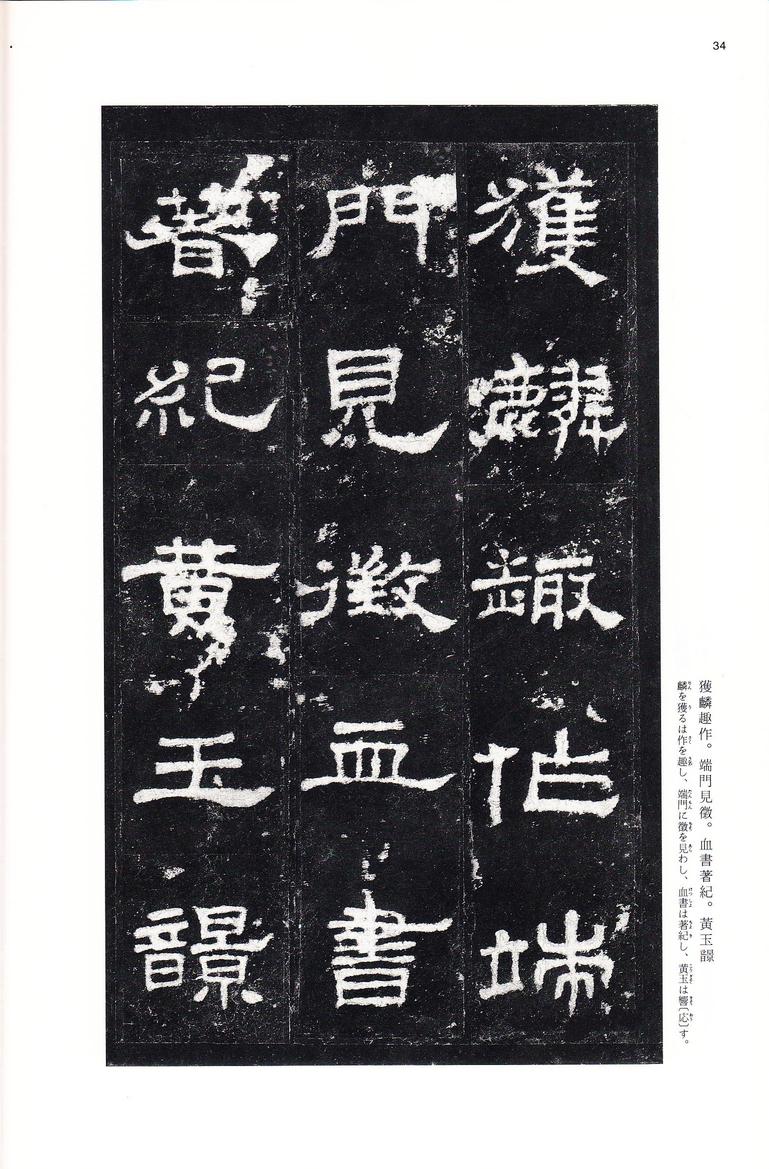 34
獲麟趣作端
門見徵血書
著紀黃玉䪫
獲麟趣作。端門見徵。血書著紀。黃玉䪫
麟を獲るは作を趣し、端門に徵を見わし、血書は著紀し、黄玉は響〔応〕す。